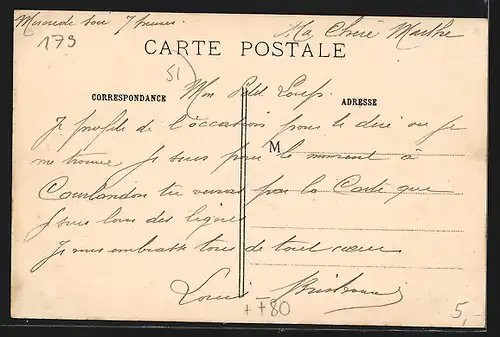 Mercredi soir 7 heures
Ma Chère Marthe
179
CARTE POSTALE
51
CORRESPONDANCE
ADRESSE
Mon Petit Loup
Je profite de l'occasion pour te dire ou je
M
me trouve Je suis pour le moment à
Courlandon tu verras par la Carte que
Je suis loin des lignes
Je vous embrasse tous de tout cœur
Louis
++80
5,-